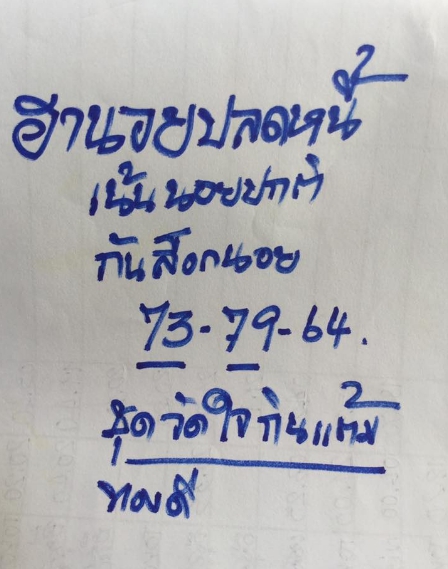 ฮานอยปลดหนี้
เน้นนอยปกติ
กันสือกนอย
73-79-64.
ชุดวัดใจกินแต้ม
ทองดี